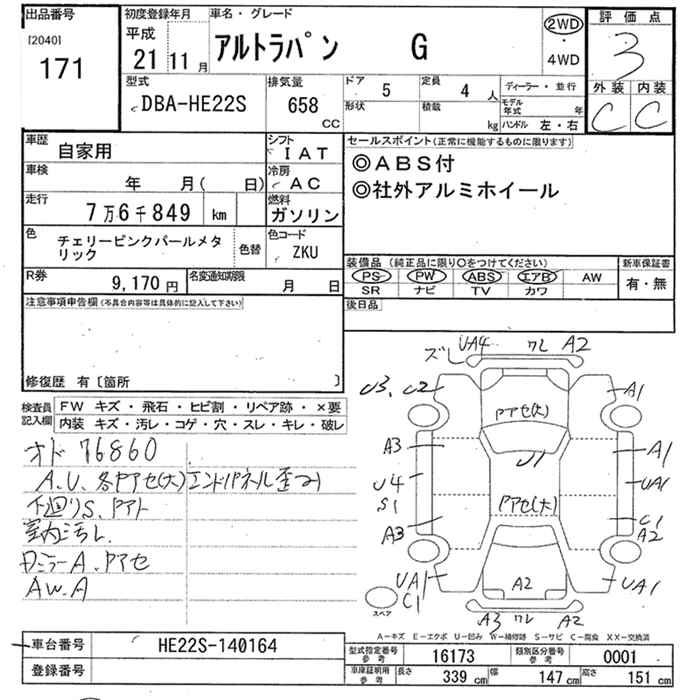 出品番号
[2040]
171
初度登録年月
平成
21 11 月
車名・グレード
アルトラパン G
2WD
・
4WD
評価点
3
外装 内装
C C
型式
DBA-HE22S
排気量
658
CC
ドア
5
定員
4 人
形状
積載
kg
ディーラー・並行
モデル年式 年
ハンドル 左・右
車歴
自家用
シフト
IAT
車検
年 月( 日)
冷房
AC
走行
7万6千849 km
燃料
ガソリン
色
チェリーピンクパールメタリック
色替
色コード
ZKU
R券
9,170 円
名変通知期限
月 日
セールスポイント(正常に機能するものに限ります)
◎ABS付
◎社外アルミホイール
装備品(純正品に限り〇をつけてください)
PS PW ABS エアB AW
SR ナビ TV カワ
新車保証書
有・無
後日品
注意事項申告欄(不具合内容等は具体的に記入して下さい)
修復歴 有〔箇所 〕
検査員記入欄
FW キズ・飛石・ヒビ割・リペア跡・×要
内装 キズ・汚レ・コゲ・穴・スレ・キレ・破レ
オド 76860
A.U、各Pアセ(大)エンドパネル歪み
下廻りS、Pアト
室内汚レ
Dミラー A、Pアセ
AW.A
ズレ UA4 ワレ A2
U3、U2
A1
Pアセ(大)
A3
U1
A1
U4
S1
UA1
Pアセ(大)
A3
C1
A2
UA1
C1
スペア
A2
UA1
A3 ワレ A2
A―キズ E―エクボ U―凹み W―補修跡 S―サビ C―腐食 XX―交換済
車台番号
HE22S-140164
登録番号
型式指定番号
参考
16173
類別区分番号
参考
0001
車庫証明用
参考
長さ 339 cm 幅 147 cm 高さ 151 cm